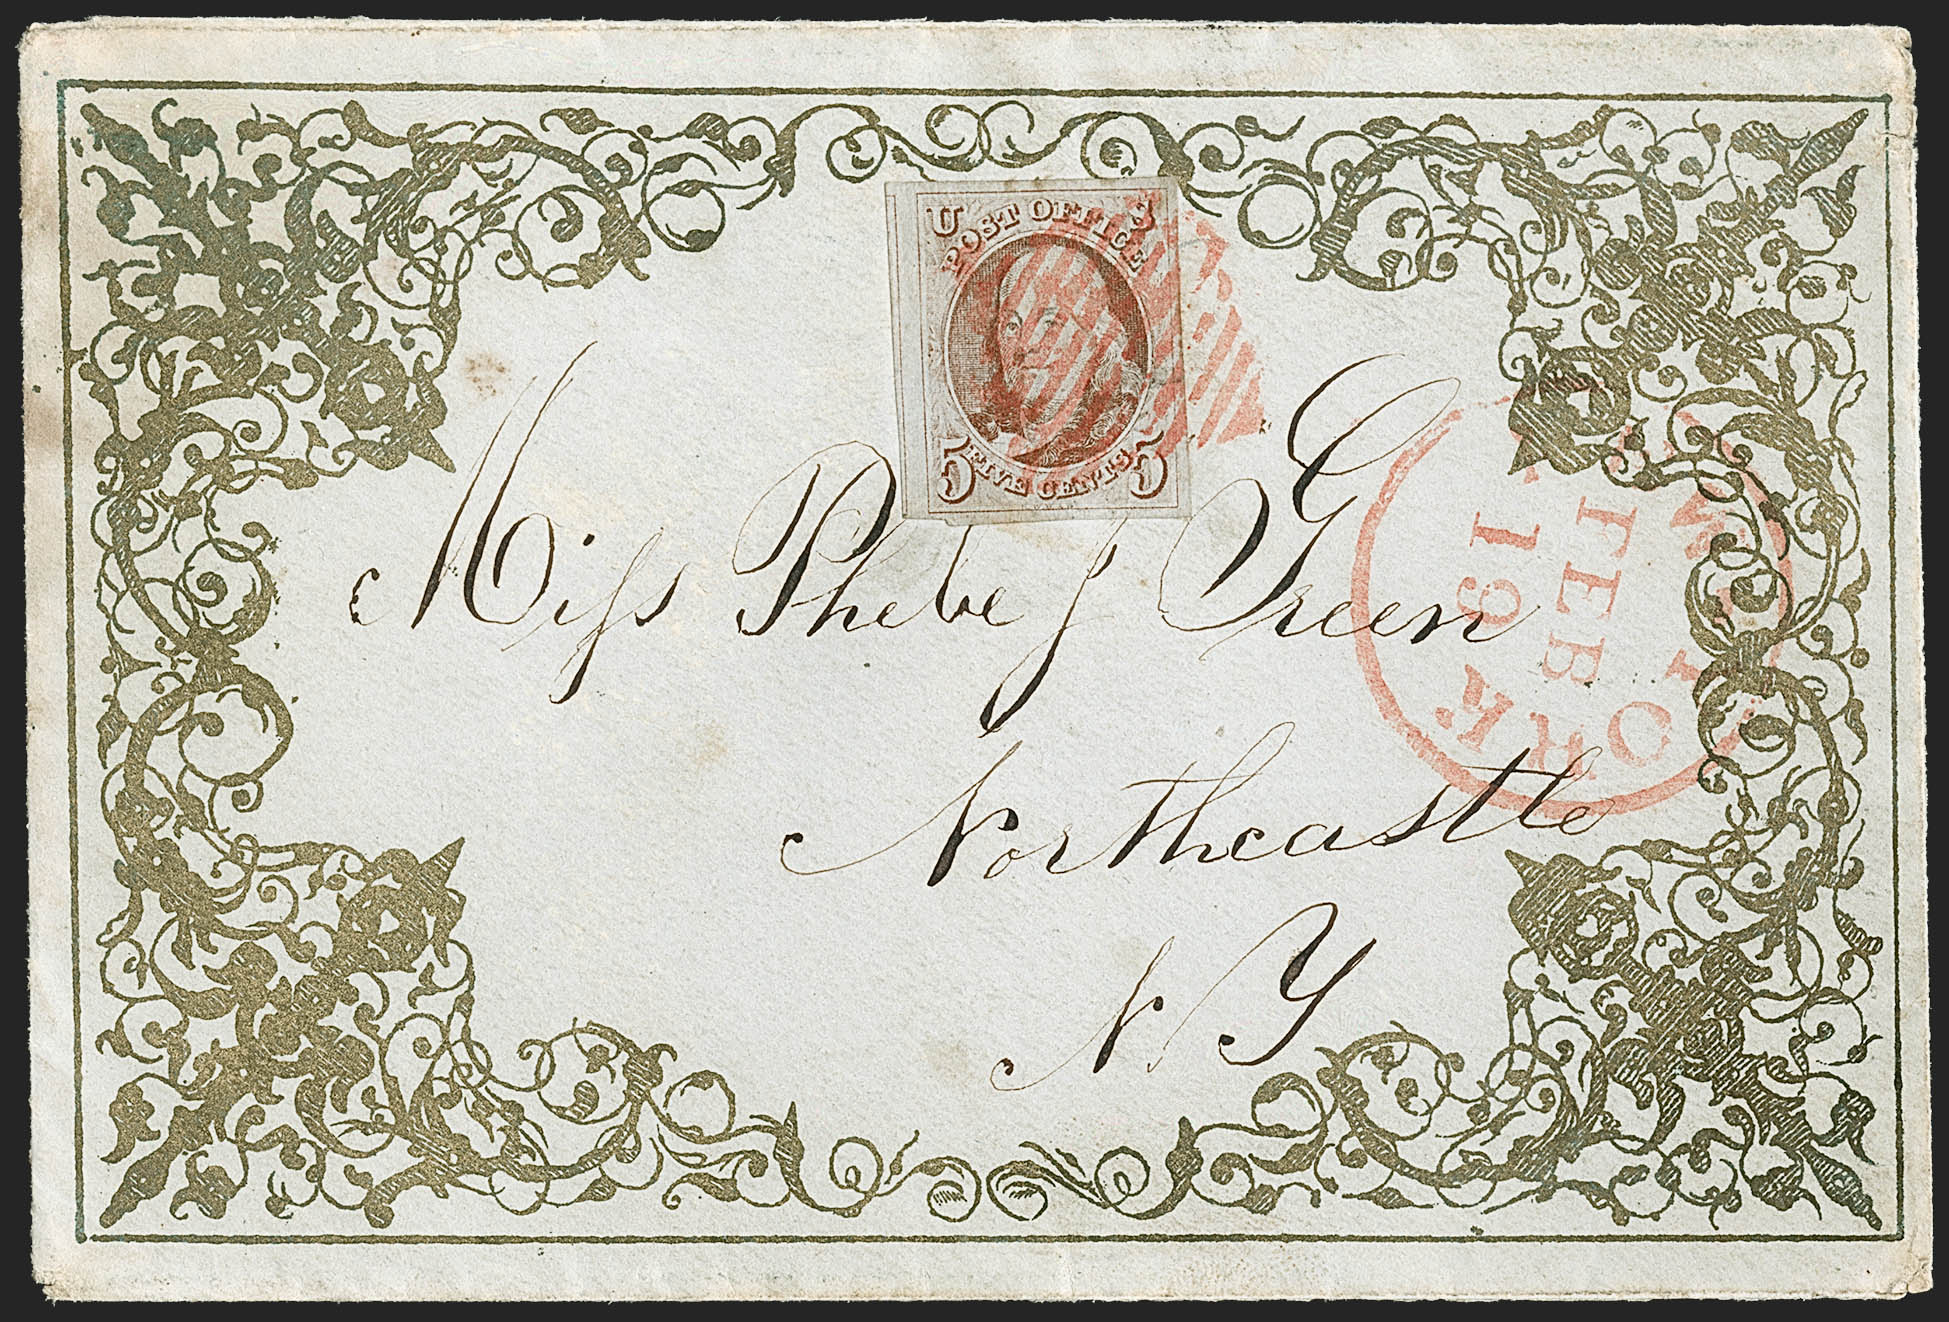 U S
POST OFFICE
5 FIVE CENTS 5
NEW YORK
FEB
19
Miss Phebe J Green
Northcastle
N. Y